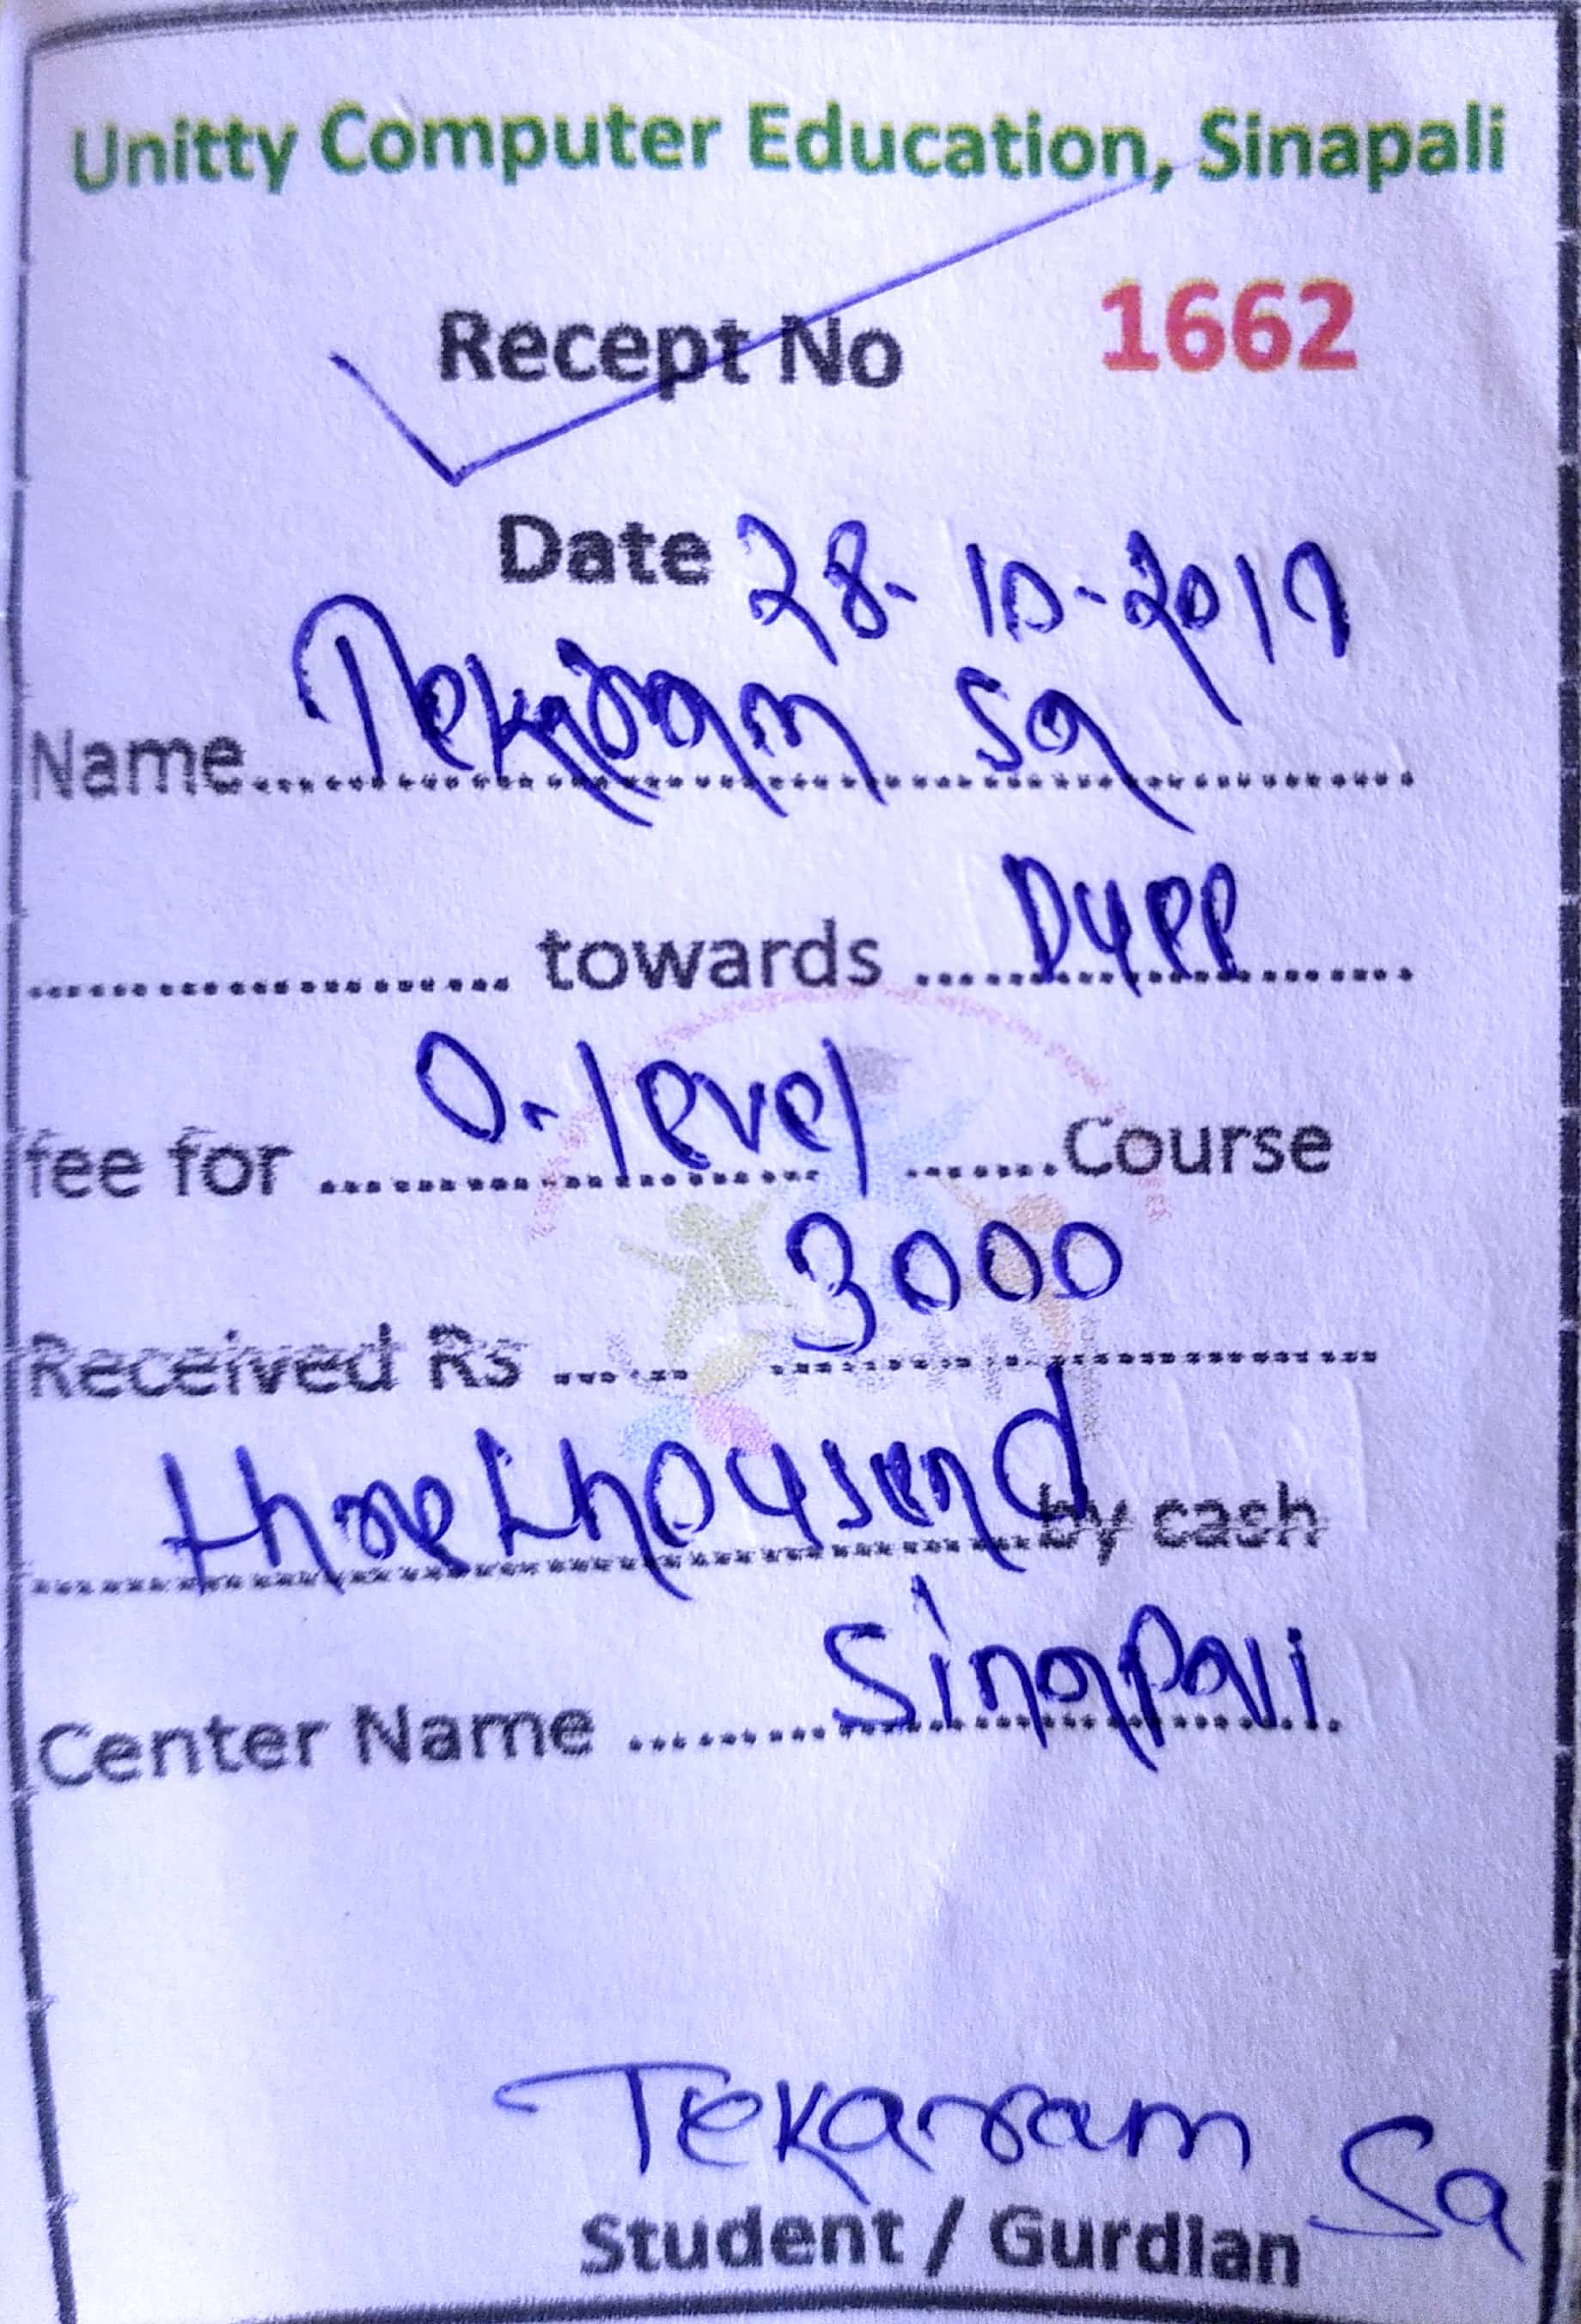 Unitty Computer Education, Sinapali
Recept No 1662
Date 28-10-2017
Name Tekaram Sa
towards Duee
fee for O-level Course
Received Rs 3000
three thousend by cash
Center Name Sinapali
Tekaram Sa
Student / Gurdian